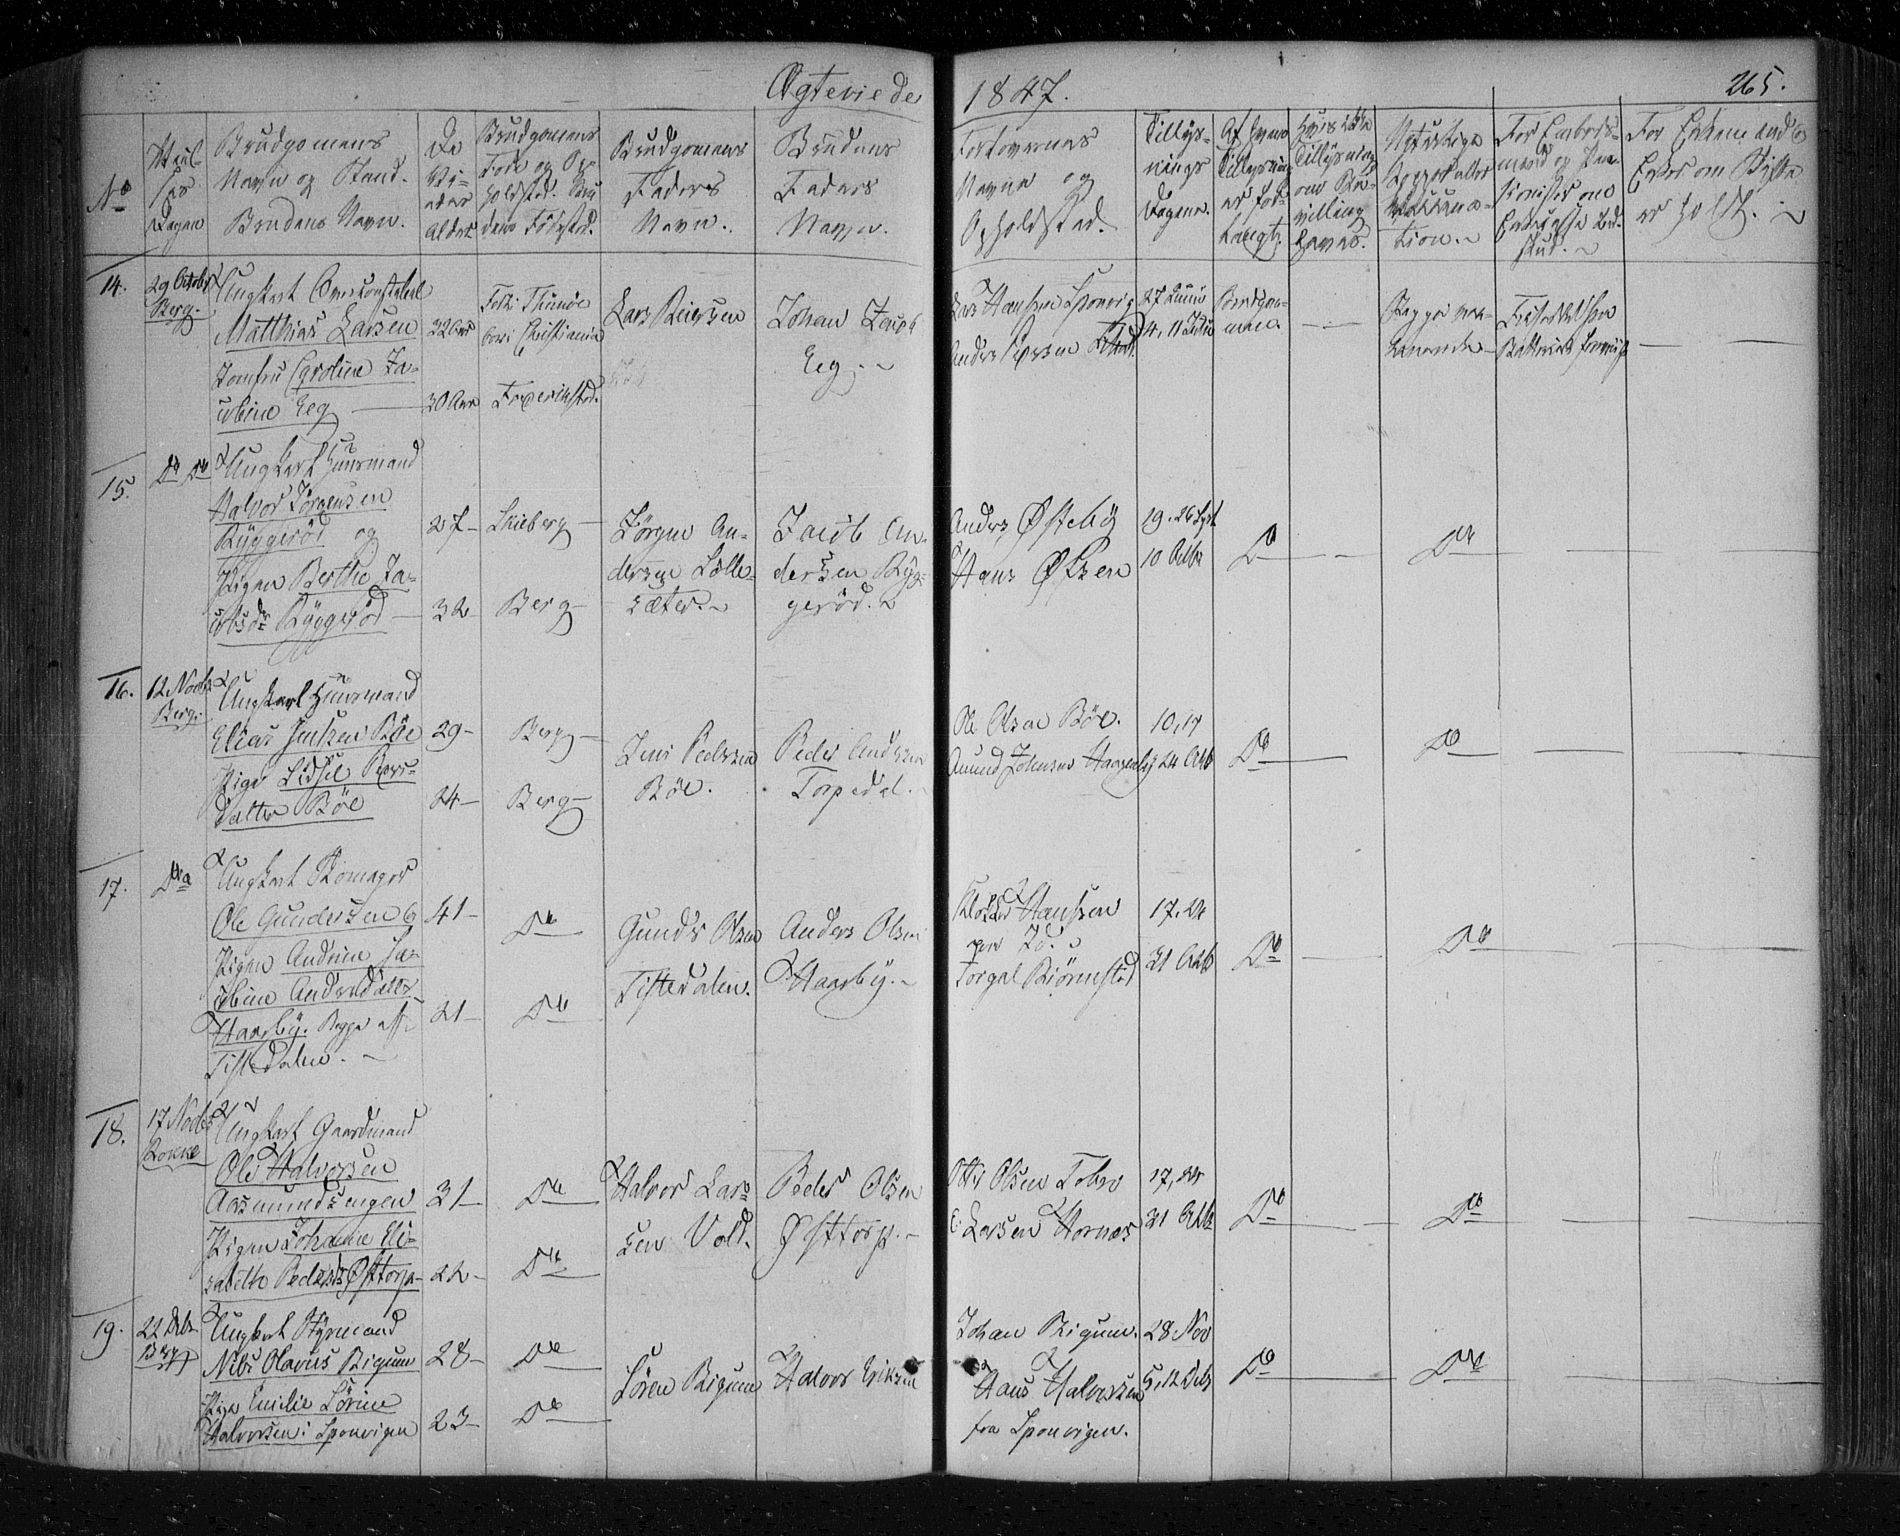 Ægteviede 1847. 265.
No
Vielses Dagen
Brudgomens
Navn og Stand.
Brudens Navn.
De
Vi-
edes
Alder
Brudgomens
Føde og Op-
holdsted. Bru
dens Fødested.
Brudgomens
Faders
Navn.
Brudens
Faders
Navn.
Forlovernes
Navne og
Opholdsted.
Tillys-
nings
Dagene.
Af hvem
Tillysning
er for-
langt.
Hvis ikke
Tillysning
om Be-
villing
haves.
Naturlige
Kopper eller
Vaccina-
tion.
For Embeds-
mænd og Pen-
sionister om
Enkecasse Ind-
skud.
For Enkemænd og
Enker om Skifte
er holdt.
14.
29 October
Berg.
Ungkarl Overconstabel
Matthias Larsen
Jomfru Caroline Ja-
cobine Eeg
32 Aar
30 Aar
Christiania
Frederikstad.
Lars Reiersen
Johan Jacob
Eeg.
Lars Hansen Sponvig
27 Juni
4, 11 Juli
Brudgom-
men.
Begge vac-
cinerede
15.
Do Do
Ungkarl Huusmand
Halvor Jørgensen
Ryggerød og
Pigen Berthe Ja-
cobsdr Ryggerød
27
32
Skieberg
Berg
Jørgen An-
dersen Lølle-
sæter.
Jacob An-
dersen Ryg-
gerød.
Anders Østeby
Hans Olsen
19. 26 Sept
10 Octbr
Do
Do
16.
12 Novbr
Berg.
Ungkarl Huusmand
Elias Jensen Böe
Pige Lissel Peders-
datter Böe
29
24
Berg
Berg
Jens Pedersen
Böe.
Peder Andersen
Torpedal.
Ole Olsen Böe.
Amund Johnsen
10, 17
24 Octb
Do
Do
17.
Dito
Ungkarl Skomager
Ole Gundersen og
Pigen Andrine Ja-
cobine Andersdatter
Haarby. Begge af
Tistedalen.
41
21
Do
Do
Gunder Olsen
Tistedalen.
Anders Olsen
Haarby.
Klokker Hansen
Torgal Biørnstad
17, 24
31 Octb
Do
Do
18.
17 Novbr
Rokke
Ungkarl Gaardmand
Ole Halvorsen
Aasmundsengen
Pigen Johanne Eli-
sabeth Pedersdr Østtorp
31
22
Do
Do
Halvor Lar-
sen Vold.
Peder Olsen
Østtorp.
Otto Olsen
Larsen Hornæs
17, 24
31 Octb
Do
Do
19.
22 Decbr
Berg
Ungkarl Styrmand
Niels Olavus Bigum
Pige Emilie Sørine
Halvorsen i Sponvigen
28
23
Do
Do
Søren Bigum
Halvor Eriksen
Johan Bigum.
Hans Halvorsen
fra Sponvigen.
28 Nov
5, 12 Decbr
Do
Do